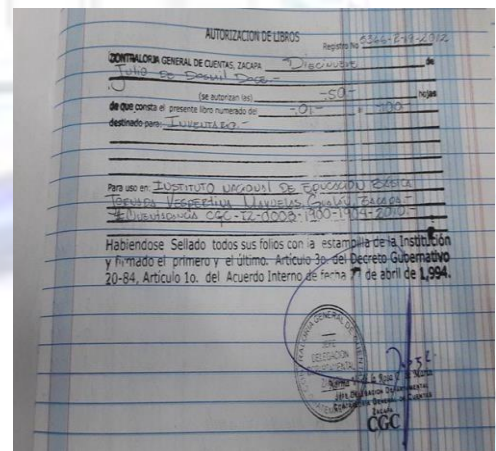 AUTORIZACION DE LIBROS
Registro No
CONTRALORIA GENERAL DE CUENTAS, ZACAPA Diecinueve de
Julio de Dosmil Doce.-
(se autorizan las) -50- hojas
de que consta el presente libro numerado del -01- a -100-
destinado para: INVENTARIO.-
Para uso en: INSTITUTO NACIONAL DE EDUCACIÓN BÁSICA
JORNADA VESPERTINA MAYUELAS, GUALÁN, ZACAPA.-
Habiendose Sellado todos sus folios con la estampilla de la Institución
y firmado el primero y el último. Artículo 3o. del Decreto Gubernativo
20-84, Artículo 1o. del Acuerdo Interno de fecha de abril de 1,994.
CONTRALORIA GENERAL DE CUENTAS
JEFE
DELEGACION
DEPARTAMENTAL
JEFE DELEGACION DEPARTAMENTAL
CONTRALORIA GENERAL DE CUENTAS
ZACAPA
CGC